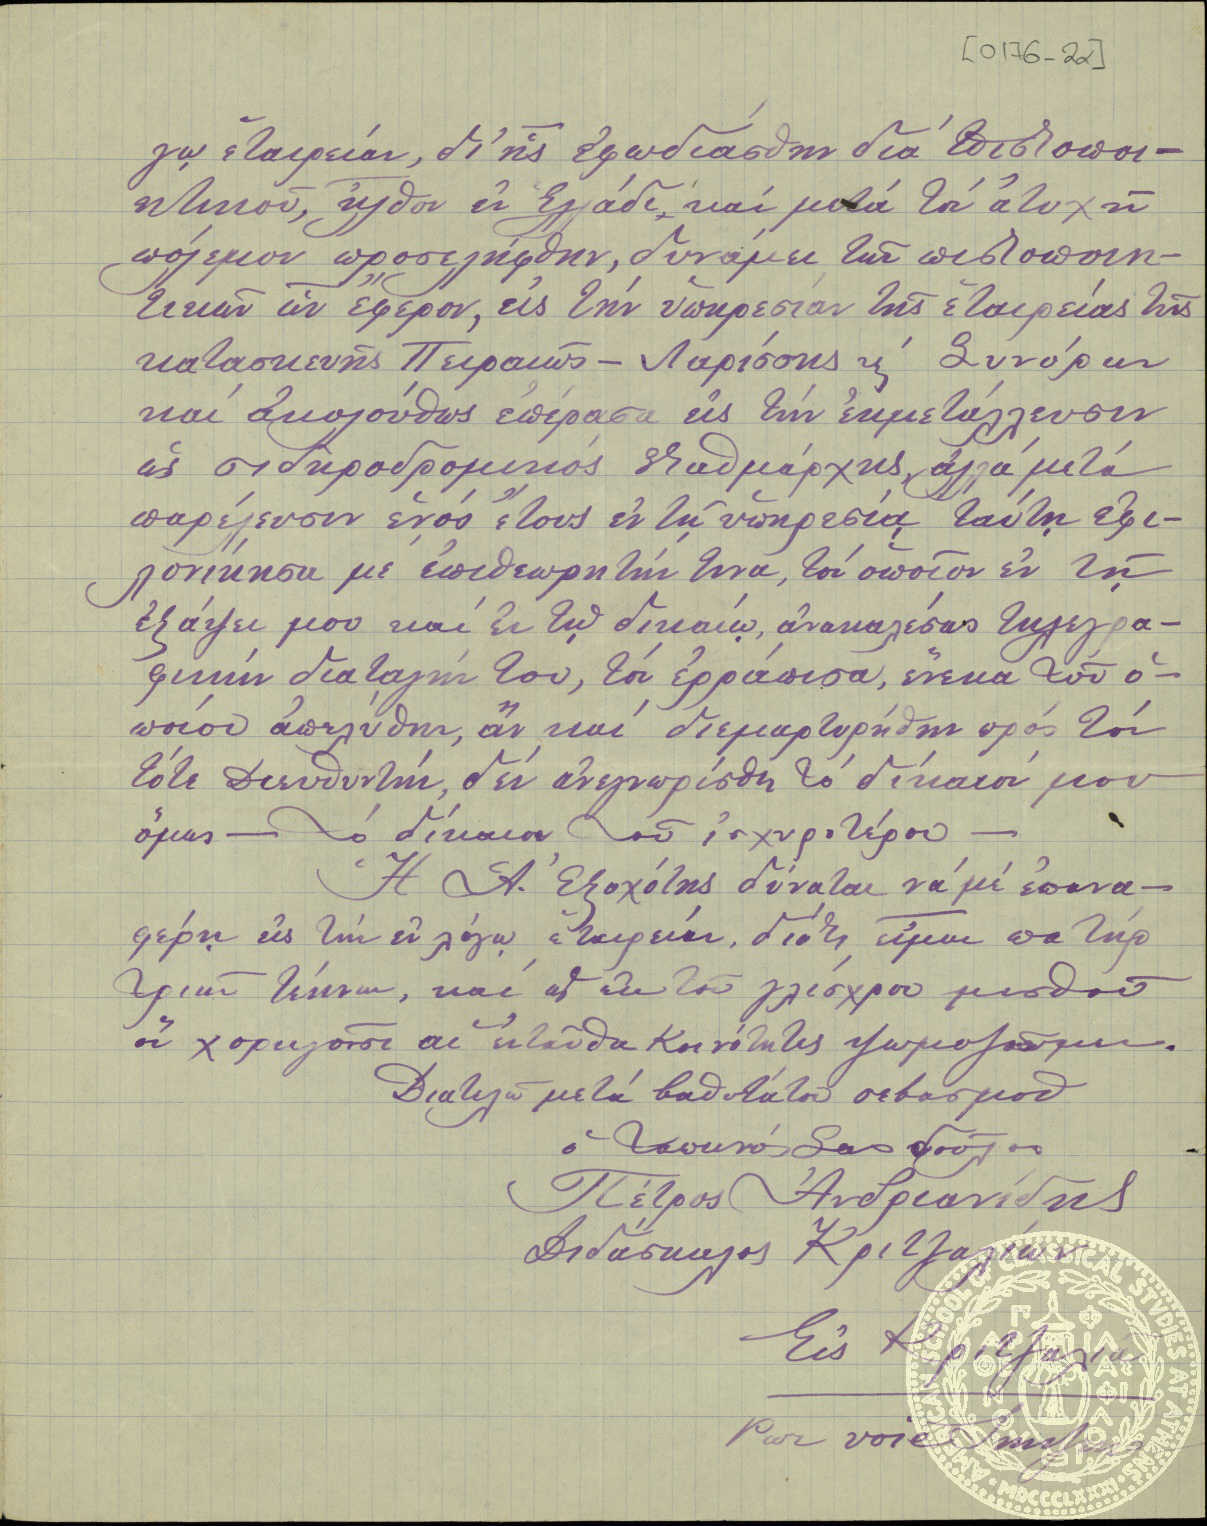 [0176-22]
γῳ ἑταιρείαν, δι' ἧς ἐφωδιάσθην διὰ πιστοποι-
ητικοῦ, ἦλθον ἐν Ἑλλάδι, καὶ μετὰ τὸν ἀτυχῆ
πόλεμον προσελήφθην, δυνάμει τῶν πιστοποιη-
τικῶν ὧν ἔφερον, εἰς τὴν ὑπηρεσίαν τῆς ἑταιρείας τῆς
κατασκευῆς Πειραιῶς – Λαρίσσης κ' Συνόρων
καὶ ἀκολούθως ἐπέρασα εἰς τὴν ἐκμετάλλευσιν
ὡς σιδηροδρομικὸς σταθμάρχης, ἀλλὰ μετὰ
παρέλευσιν ἑνὸς ἔτους ἐν τῇ ὑπηρεσίᾳ ταύτῃ ἐφι-
λονίκησα μὲ ἐπιθεωρητήν τινα, τὸν ὁποῖον ἐν τῇ
ἐξάψει μου καὶ ἐν τῷ δικαίῳ, ἀνακαλέσας τηλεγρα-
φικὴν διαταγήν του, τὸν ἐρράπισα, ἕνεκα τοῦ ὁ-
ποίου ἀπελύθην, ἂν καὶ διεμαρτυρήθην πρὸς τὸν
τότε Διευθυντὴν, δὲν ἀνεγνωρίσθη τὸ δίκαιόν μου
ὅμως — τὸ δίκαιον τοῦ ἰσχυροτέρου —
Ἡ Α. Ἐξοχότης δύναται νὰ μὲ ἐπανα-
φέρῃ εἰς τὴν ἐν λόγῳ ἑταιρείαν, διότι εἶμαι πατὴρ
τριῶν τέκνων, καὶ ὡς ἐκ τοῦ γλίσχρου μισθοῦ
ὃν χορηγοῦσι αἱ ἐνταῦθα Κοινότητες ψωμοζοῦμεν.
Διατελῶ μετὰ βαθυτάτου σεβασμοῦ
ὁ ταπεινὸς Σας δοῦλος
Πέτρος Ἀνδριανίδης
Διδάσκαλος Κριτζαλίων
Εἰς Κριτζαλιά
AMERICAN SCHOOL OF CLASSICAL STVDIES AT ATHENS · MDCCCLXXXI ·